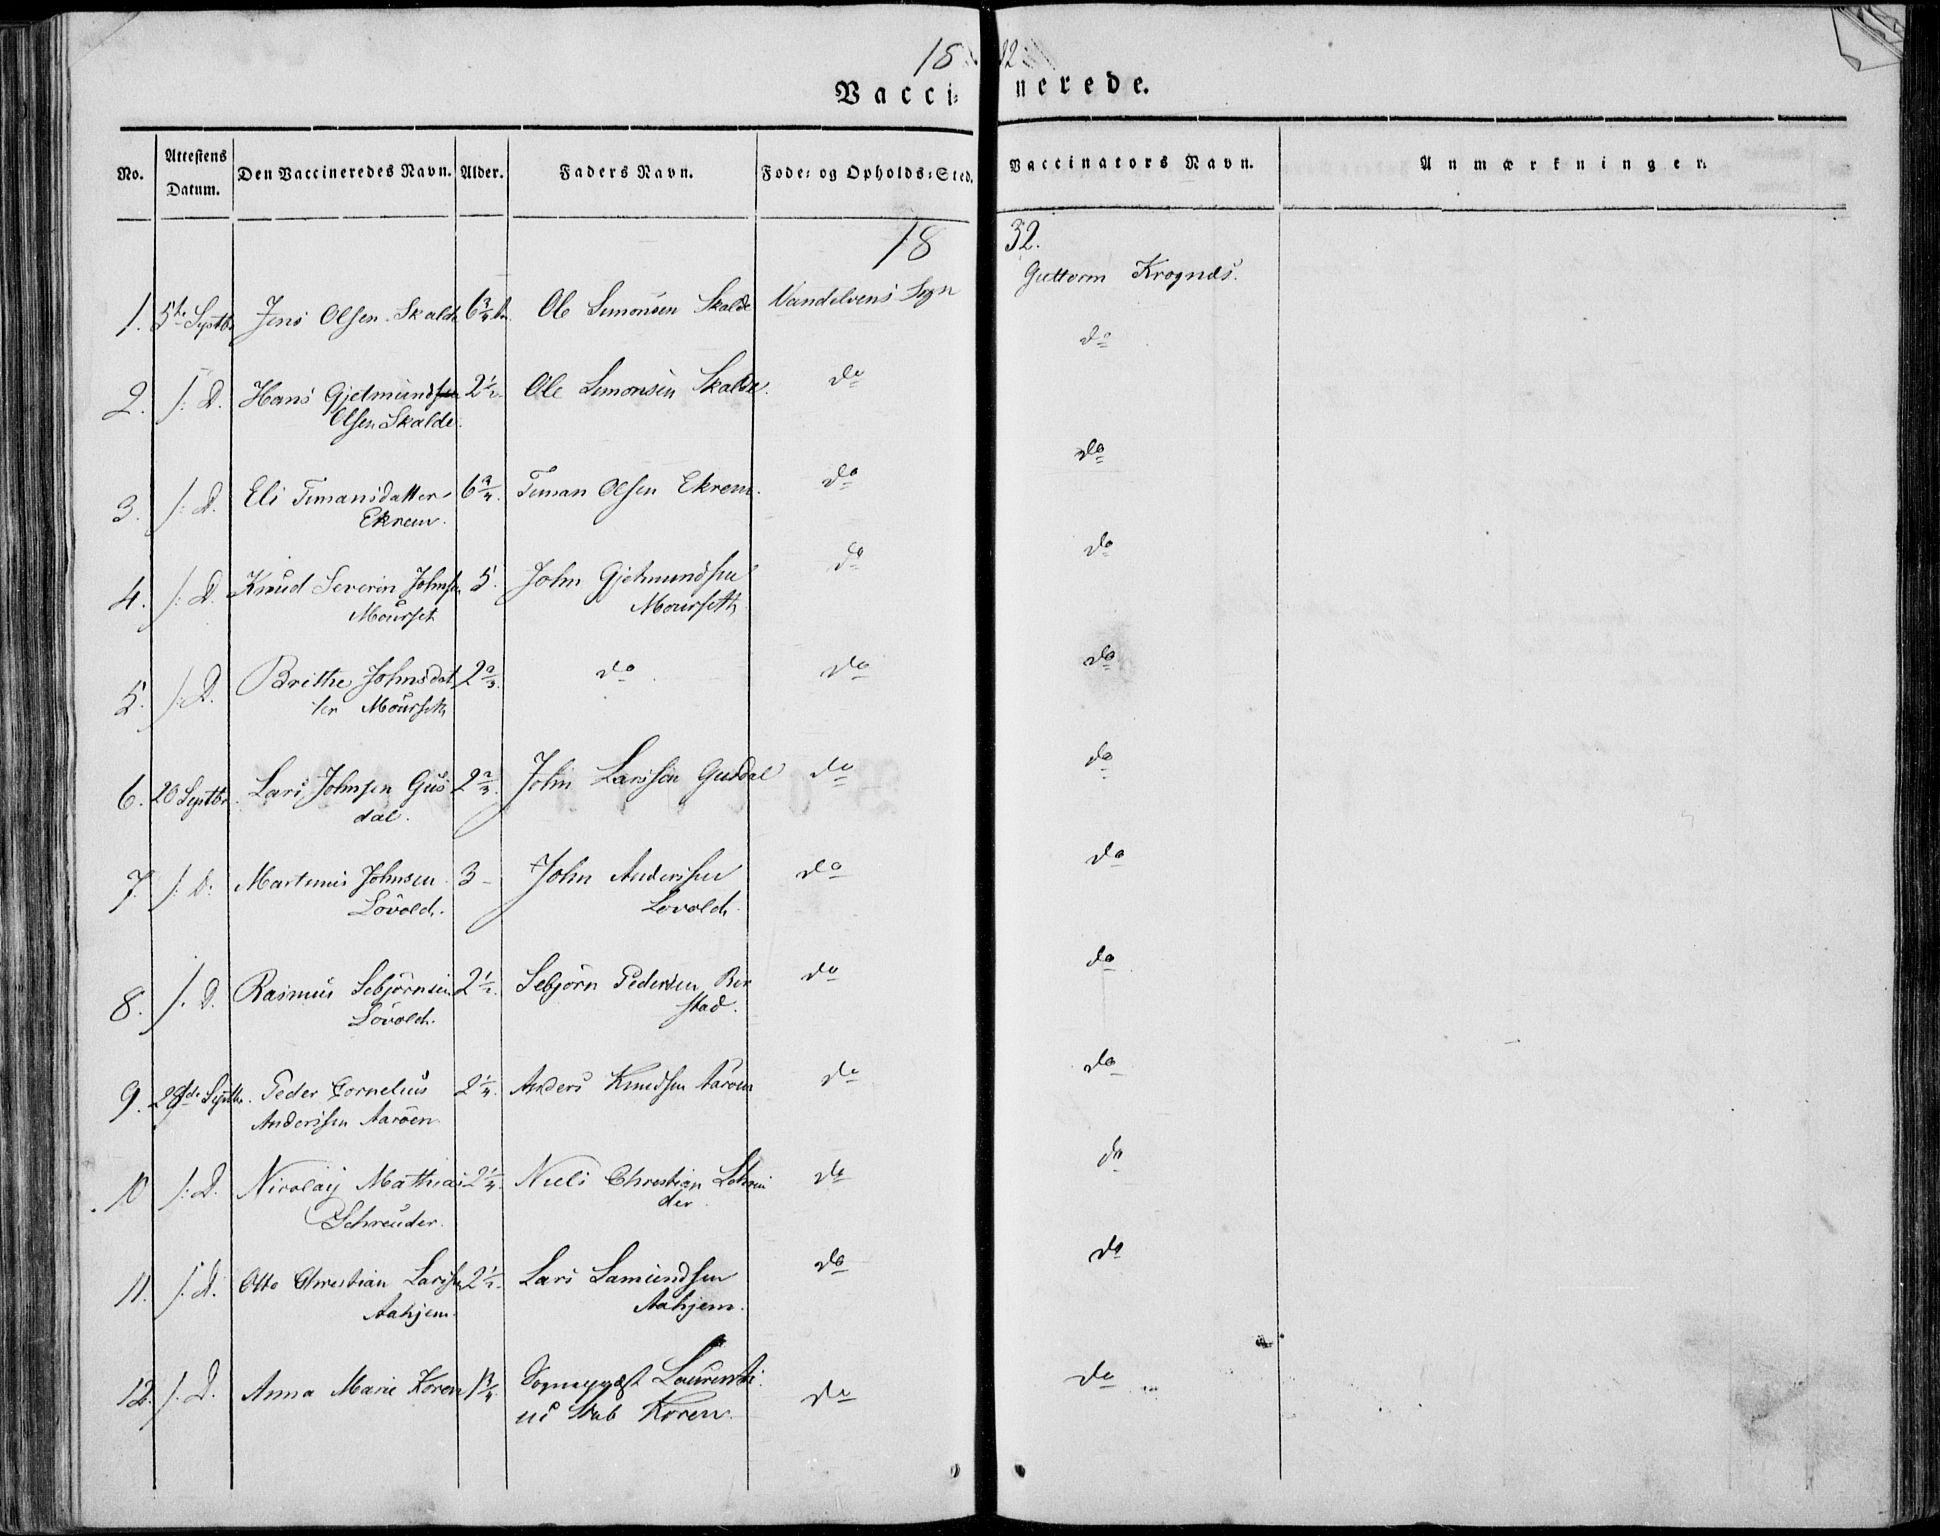 18 32
Vaccinerede.
No. Attestens Datum. Den Vaccineredes Navn. Alder. Faders Navn. Føde- og Opholds-Sted. Vaccinators Navn. Anmærkninger.
18 32.
1. 5te Septbr Jens Olsen Skalde 6 3/4 Ole Simonsen Skalde Vandelvens Sogn Guttorm Krognæs.
2. s: D. Hans Gjetmundsen 2 1/2 Ole Simonsen Skalde. do do
Olsen Skalde.
3. s: D. Eli Timansdatter 6 3/4. Timan Olsen Ekrem. do do
Ekrem.
4. s: D. Knud Severin Johnsen 5. John Gjetmundsen do do
Mourset Mourseth
5. s: D. Brithe Johnsdat 2 2/3. do do do
ter Mourseth
6. 20 Septbr. Lars Johnsen Gus 2 John Larssen Gusdal do do
dal.
7. s: D. Martinus Johnsen 3 - John Anderssen do do
Løvold. Løvold.
8. s. D. Rasmus Sebjørnsen 2 1/2. Sebjørn Pedersen do do
Løvold. stad.
9. 28de Septbr. Peder Cornelius 2 1/4. Anders Knudsen Aarøen do do
Anderssen Aarøen
10 s: D. Nicolay Mathias 2 1/4. Niels Christian Schreu do do
Schreuder. der.
11. s: D. Otto Christian Larssen 2 1/2. Lars Samundsen do do
Aahjem. Aahjem.
12. s. D. Anna Marie Koren 1 3/4. Sognepræst Laurenti do do
us Stub Koren.